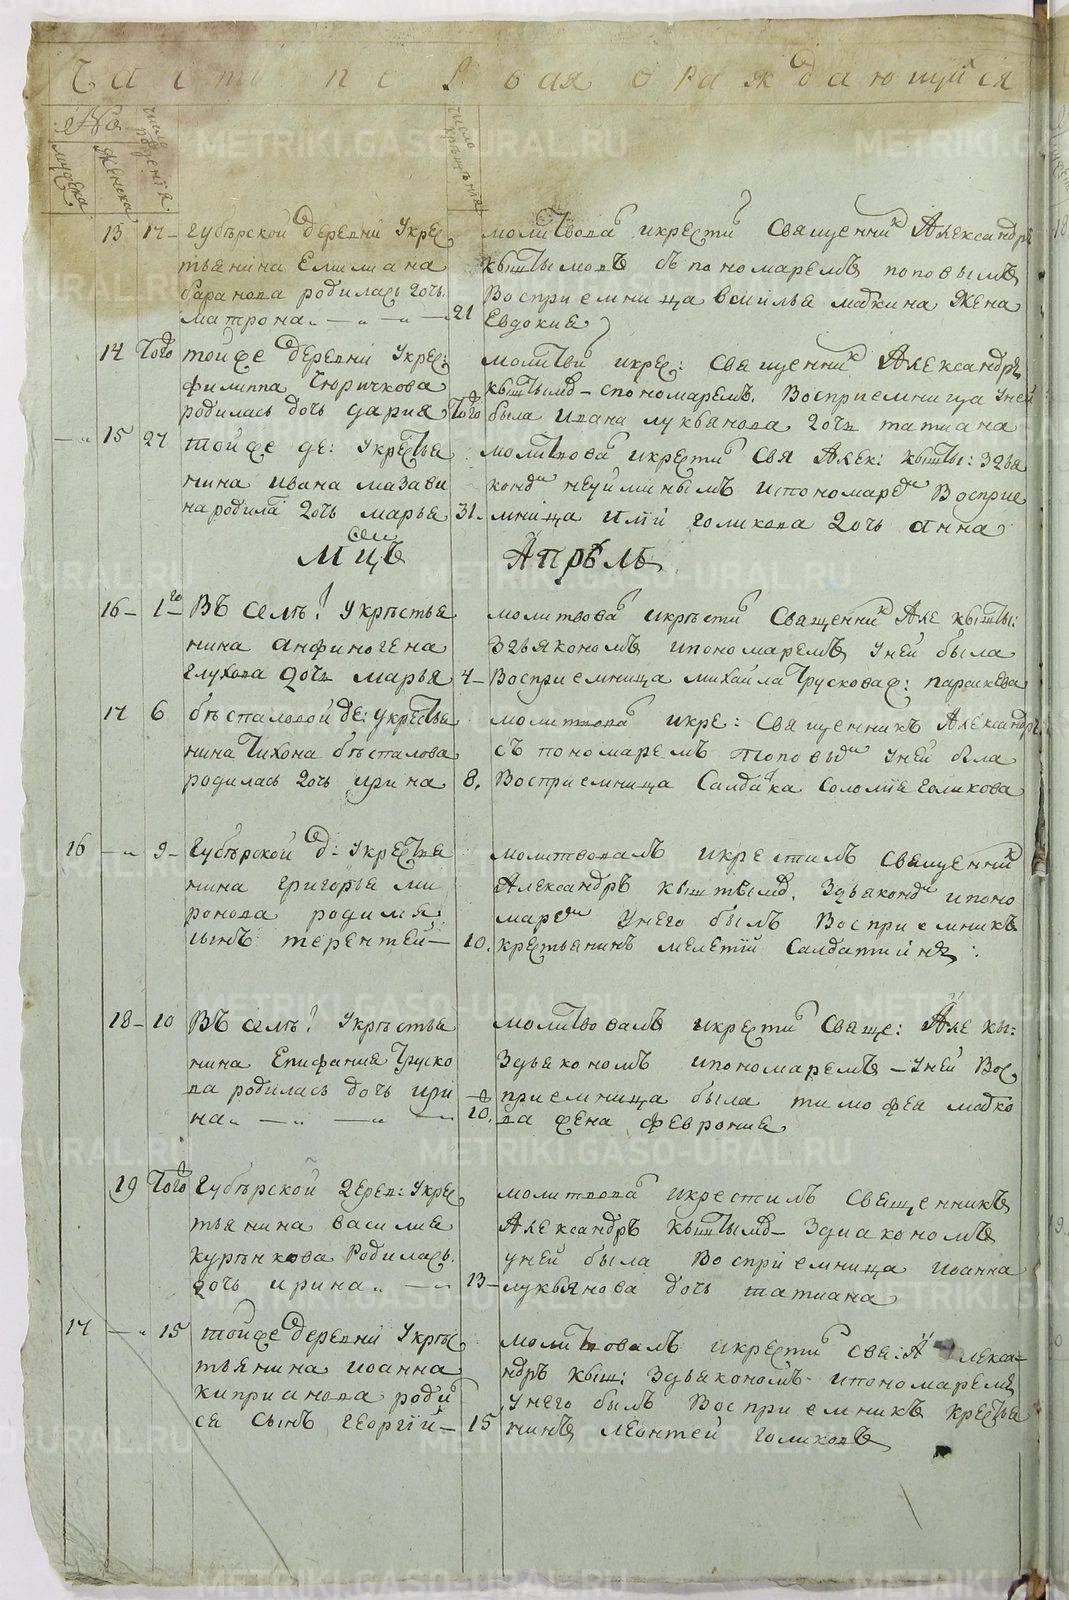 Часть первая о раждающийся
No
число рождения
число крещения
мужеска
женска
13 17 Губѣрской деревни у крес
тьянина Емилиана
баранова родилась дочь
матрона 21
молитвовалъ и крестилъ Священникъ Александръ
кыштымовъ съ пономаремъ поповымъ
Восприемница василья маткина жена
Евдокия
14 Того тойже деревни у крес:
филиппа Тюричкова
родилась дочь дария Того
молитви и крес: Священникъ Александръ
кыштымо- с пономаремъ. Восприемница у ней
была ивана лукьянова дочь татиана
15 27 тойже де: у крестья
нина ивана мазави
на родила дочь марья 31
молитвова и крести свя Алек: кышты: з дья
кономъ неуйминымъ и пономаремъ Восприе
мница голикова дочь анна
сеи
Мцъ Апрѣль
16 1го Въ селѣ: у кресть­я
нина анфиногена
глухова дочь марья 4
молитвова и крести Священникъ Але кышты:
з дьякономъ и пономаремъ у ней была
Восприемница михайла Трускова ж: параскева
17 6 бѣспаловой де: у крестья
нина Тихона бѣспалова
родилась дочь ирина 8.
молитвова и кре: Священникъ Александръ
съ пономаремъ поповымъ у ней была
Восприемница Салдатка Соломия Голикова
16 9 Губѣрской д: у крестья
нина григорья ми
ронова родился
сынъ терентей 10.
молитвовалъ и крестилъ священникъ
Александръ кыштымо. з дьякономъ и поно
маремъ у него былъ Восприемникъ
крестьянинъ мелетий Салдатии
18 10 Въ селѣ: у крестья
нина Епифания Труско
ва родилась дочь ири
на 10.
молитвовалъ и крести Свяще: Але кы:
з дьякономъ и пономаремъ у ней Вос
приемница была тимофея матко
ва жена феврония
19 Того Губѣрской дерев: у крес
тьянина василия
курѣнкова Родилась
дочь ирина 13
молитвова и крестилъ священникъ
Александръ кыштымо- з диакономъ
у ней была Восприемница иоанна
лукьянова дочь татиана
17 15 тойже деревни у крѣс
тьянина иоанна
киприанова роди
ся сынъ георгий 15
молитвовалъ и крести свя: Алекса=
ндръ кыш: з дьякономъ и пономаремъ
у него былъ Восприемникъ крестья
нинъ леонтей голиковъ
METRIKI.GASO-URAL.RU